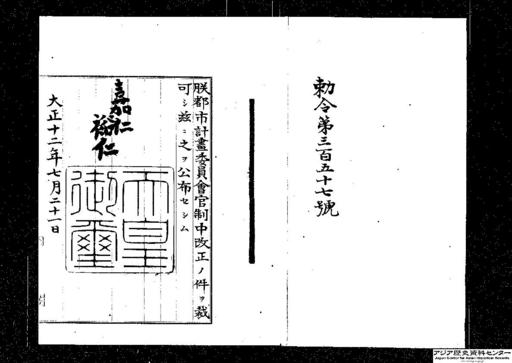 勅令第三百五十七號
朕都市計畫委員會官制中改正ノ件ヲ裁
可シ茲ニ之ヲ公布セシム
嘉仁
裕仁
天皇
御璽
大正十二年七月二十一日
アジア歴史資料センター
Japan Center for Asian Historical Records